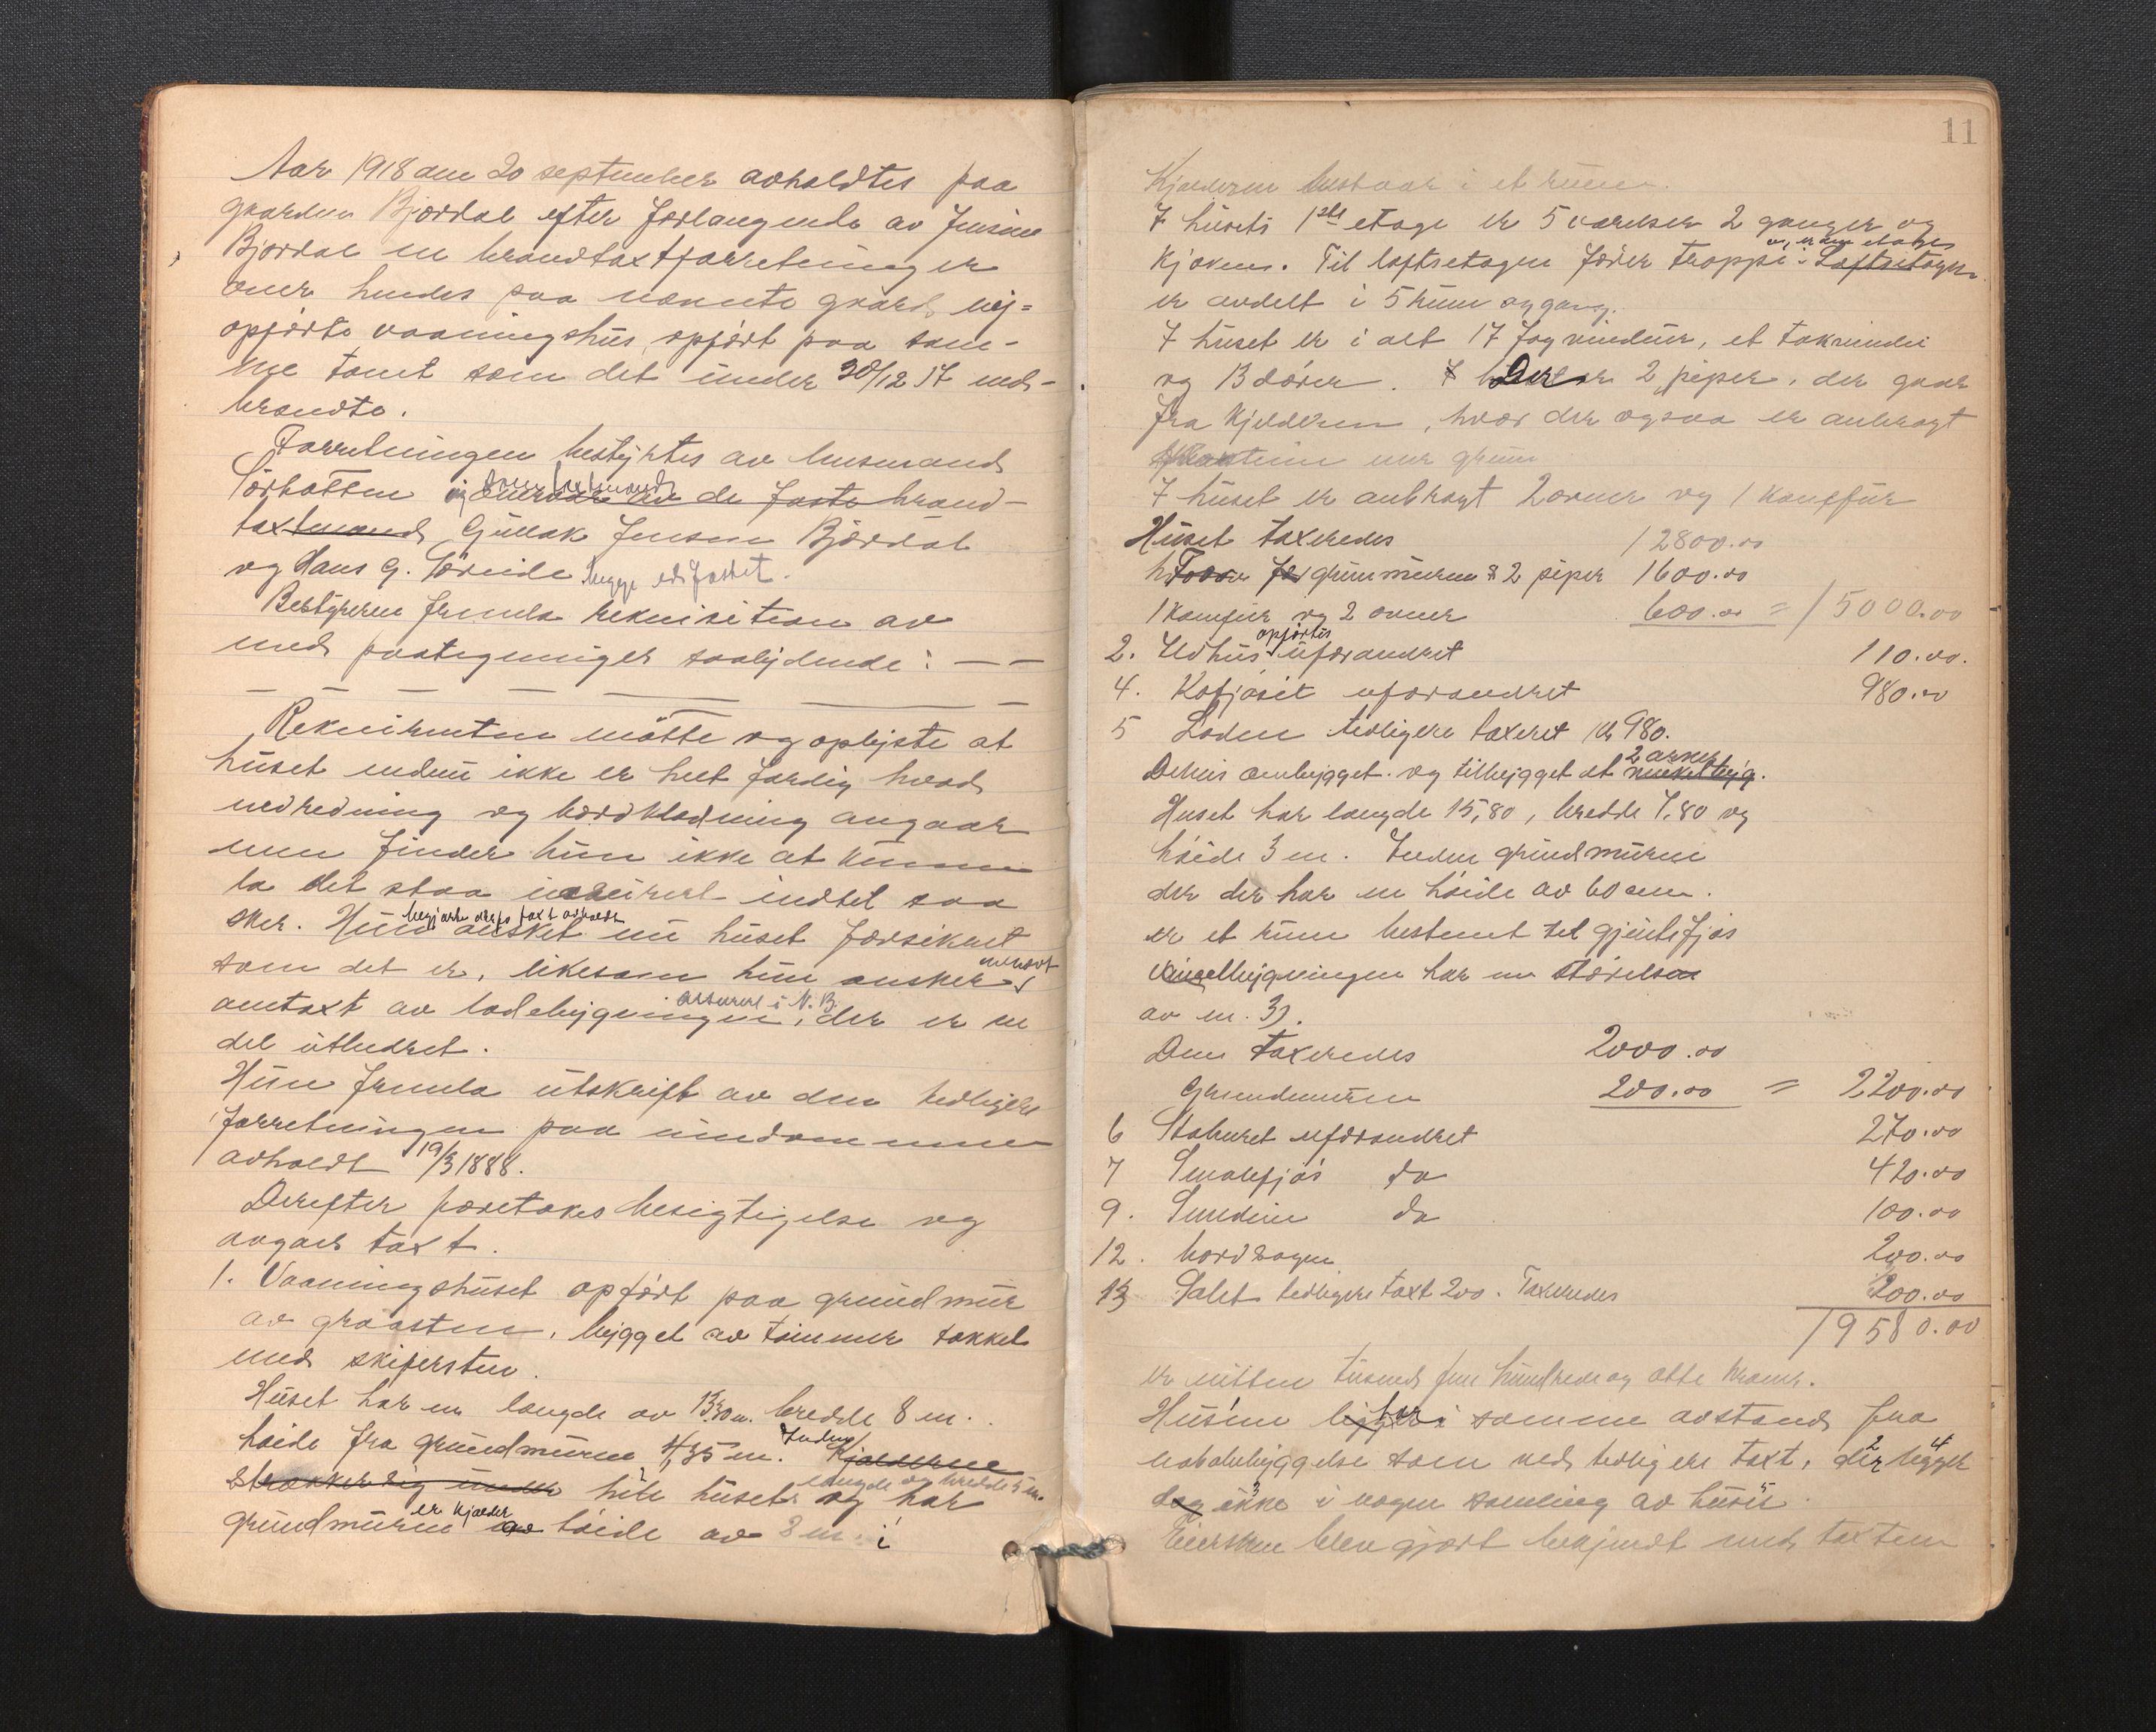 Aar 1918 den 20 september avholdtes paa
gaarden Bjordal efter forlangende av Jensine
Bjordal en brandtaxtforretning er
over hendes paa nævnte gaard ny=
opførte vaaningshus, opført paa sam-
me tomt som det under 30/12 17 ned-
brændte.
Forretningen bestyrtes av lensmand
Sørbotten og
som taxtmænd
overvar av de faste brand-
taxtmænd Gullak Jensen Bjordal
og Hans G. Søreide begge edfæstet.
Bestyreren fremla rekvisition av
med paategninger saalydende: — —
Rekvirenten møtte og oplyste at
huset endnu ikke er helt færdig hvad
indredning og bordklædning angaar
men finder hun ikke at kunne
la det staa uassurert indtil saa
sker. Hun
begjærte derfor taxt avholdt
ønsket nu huset forsikret
som det er, likesom hun ønsker
omtaxt av ladebygningen,
assurert i N. B.
der er en
del utbedret.
Hun fremla utskrift av den tidligere
forretningen paa eiendommen
avholdt 19/3 1888.
Derefter foretokes besigtigelse og
avgaes taxt.
1. Vaaningshuset opført paa grundmur
av graasten, bygget av tømmer tækket
med skifersten.
Huset har en længde av 13,30 m. bredde 8 m.
høide fra grundmuren 4,35 m.
Inden
Kjælderen
strækker sig under hele huset og har
længde og bredde 5 m.
grundmuren
er kjælder
av høide av 2 m. i
11
Kjælderen bestaar i et rum.
I husets 1ste etage er 5 værelser 2 ganger og
kjøken. Til loftsetagen fører trappe. Loftsetagen
er avdelt i 5 rum og gang.
I huset er i alt 17 fag vinduer, et takvindu
og 13 dører. Der er 2 piper, der gaar
fra kjelderen, hvor der ogsaa er anbragt
I huset er anbragt 2 ovner og 1 komfur
Huset taxeredes 12800.00
grundmuren & 2 piper 1600.00
1 komfur og 2 ovner 600.00 = 15000.00
2. Ildhus
opførtes
uforandret 110.00.
4. Kofjøset uforandret 980.00
5 Loden tidligere taxeret kr 980.
Denne ombygget og tilbygget et
2 arker
vinkelbyg.
Huset har længde 15,80, bredde 7,80 og
høide 3 m. Inden grundmuren
der der har en høide av 60 cm.
er et rum bestemt til gjeitefjøs
Vinkelbygningen har en størelse
av m. 3).
Den taxeredes 2000.00
Grundmuren 200.00 = 2200.00
6 Staburet uforandret 270.00
7 Smalefjøs do 420.00
9. Smidien do 100.00
12. bordsagen 200.00
13 Salet tidligere taxt 200. Taxeredes 200.00
19580.00
er nitten tusend fem hundrede og otte kroner.
Husene ligger
har
i samme avstand fra
nabobebyggelse som ved tidligere taxt, der ligger
2 4
dog ikke i nogen samling av husii.
3
Eiersken blev gjort bekjendt med taxten